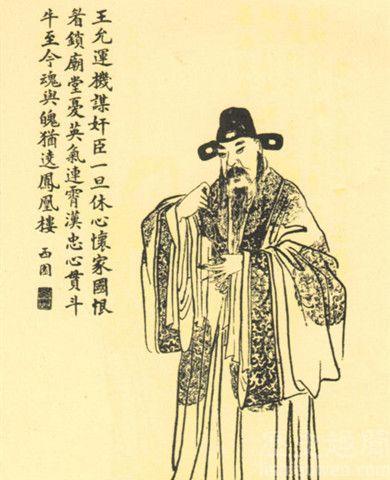 王允運機謀奸臣一旦休心懷家國恨
眉鎖廟堂憂英氣連霄漢忠心貫斗
牛至今魂與魄猶遶鳳凰樓